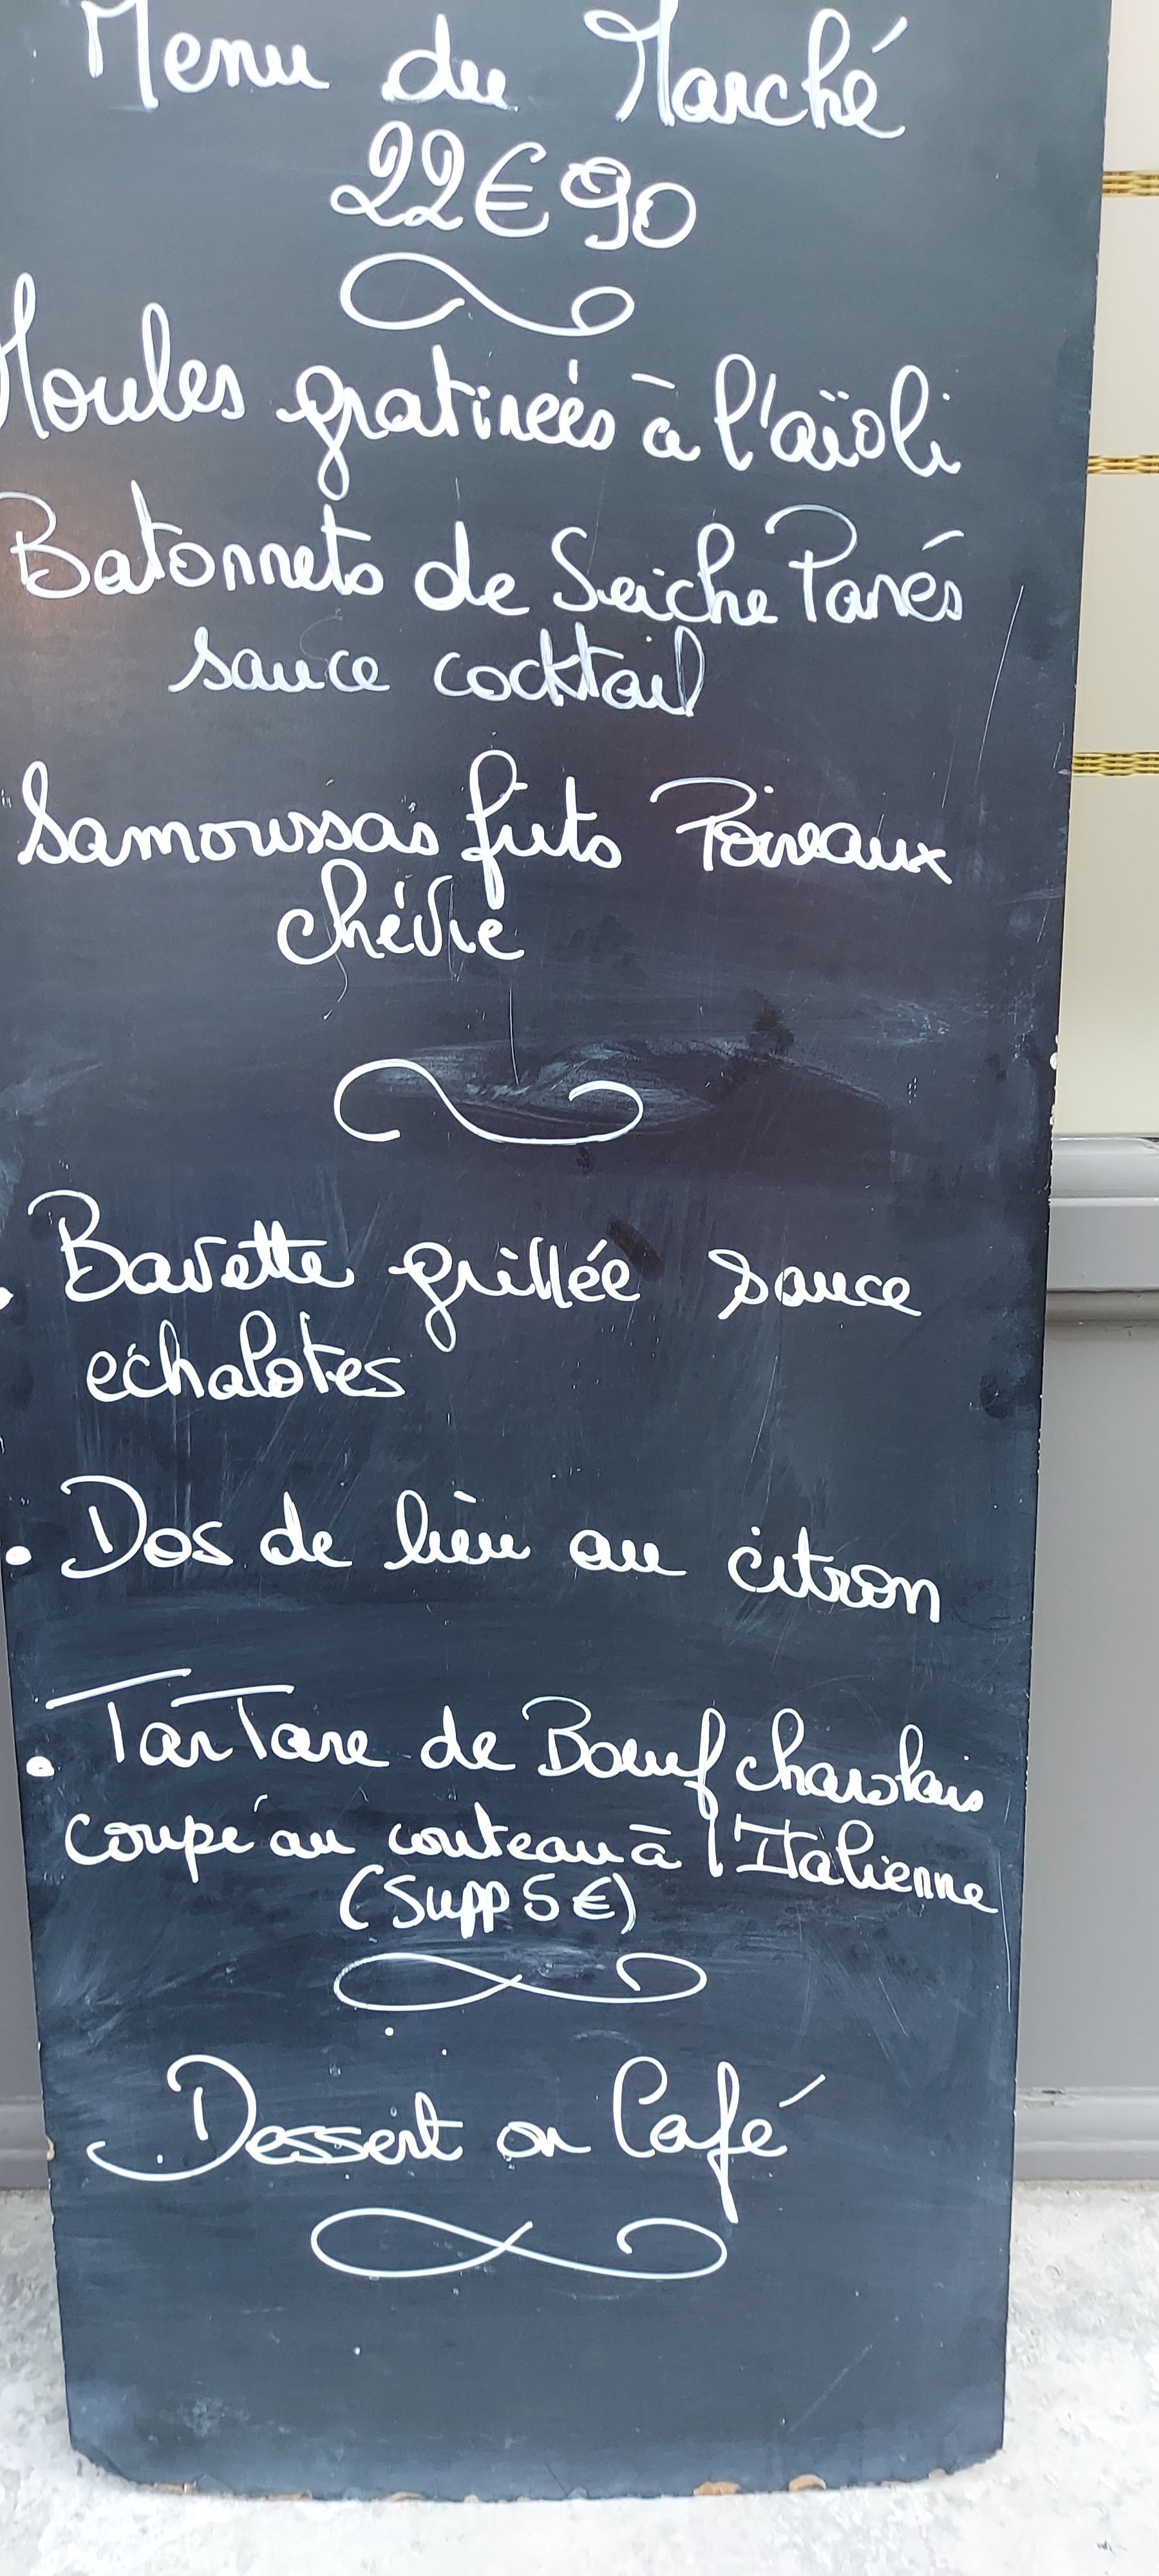 Menu du Marché
22€90
Moules gratinées à l'aïoli
Batonnets de Seiche Panés
sauce cocktail
Samoussas frits Poireaux
chévre
. Bavette grillée sauce
echalotes
. Dos de lieu au citron
. Tartare de Boeuf charolais
coupé au couteau à l'Italienne
(Supp 5€)
Dessert ou Café